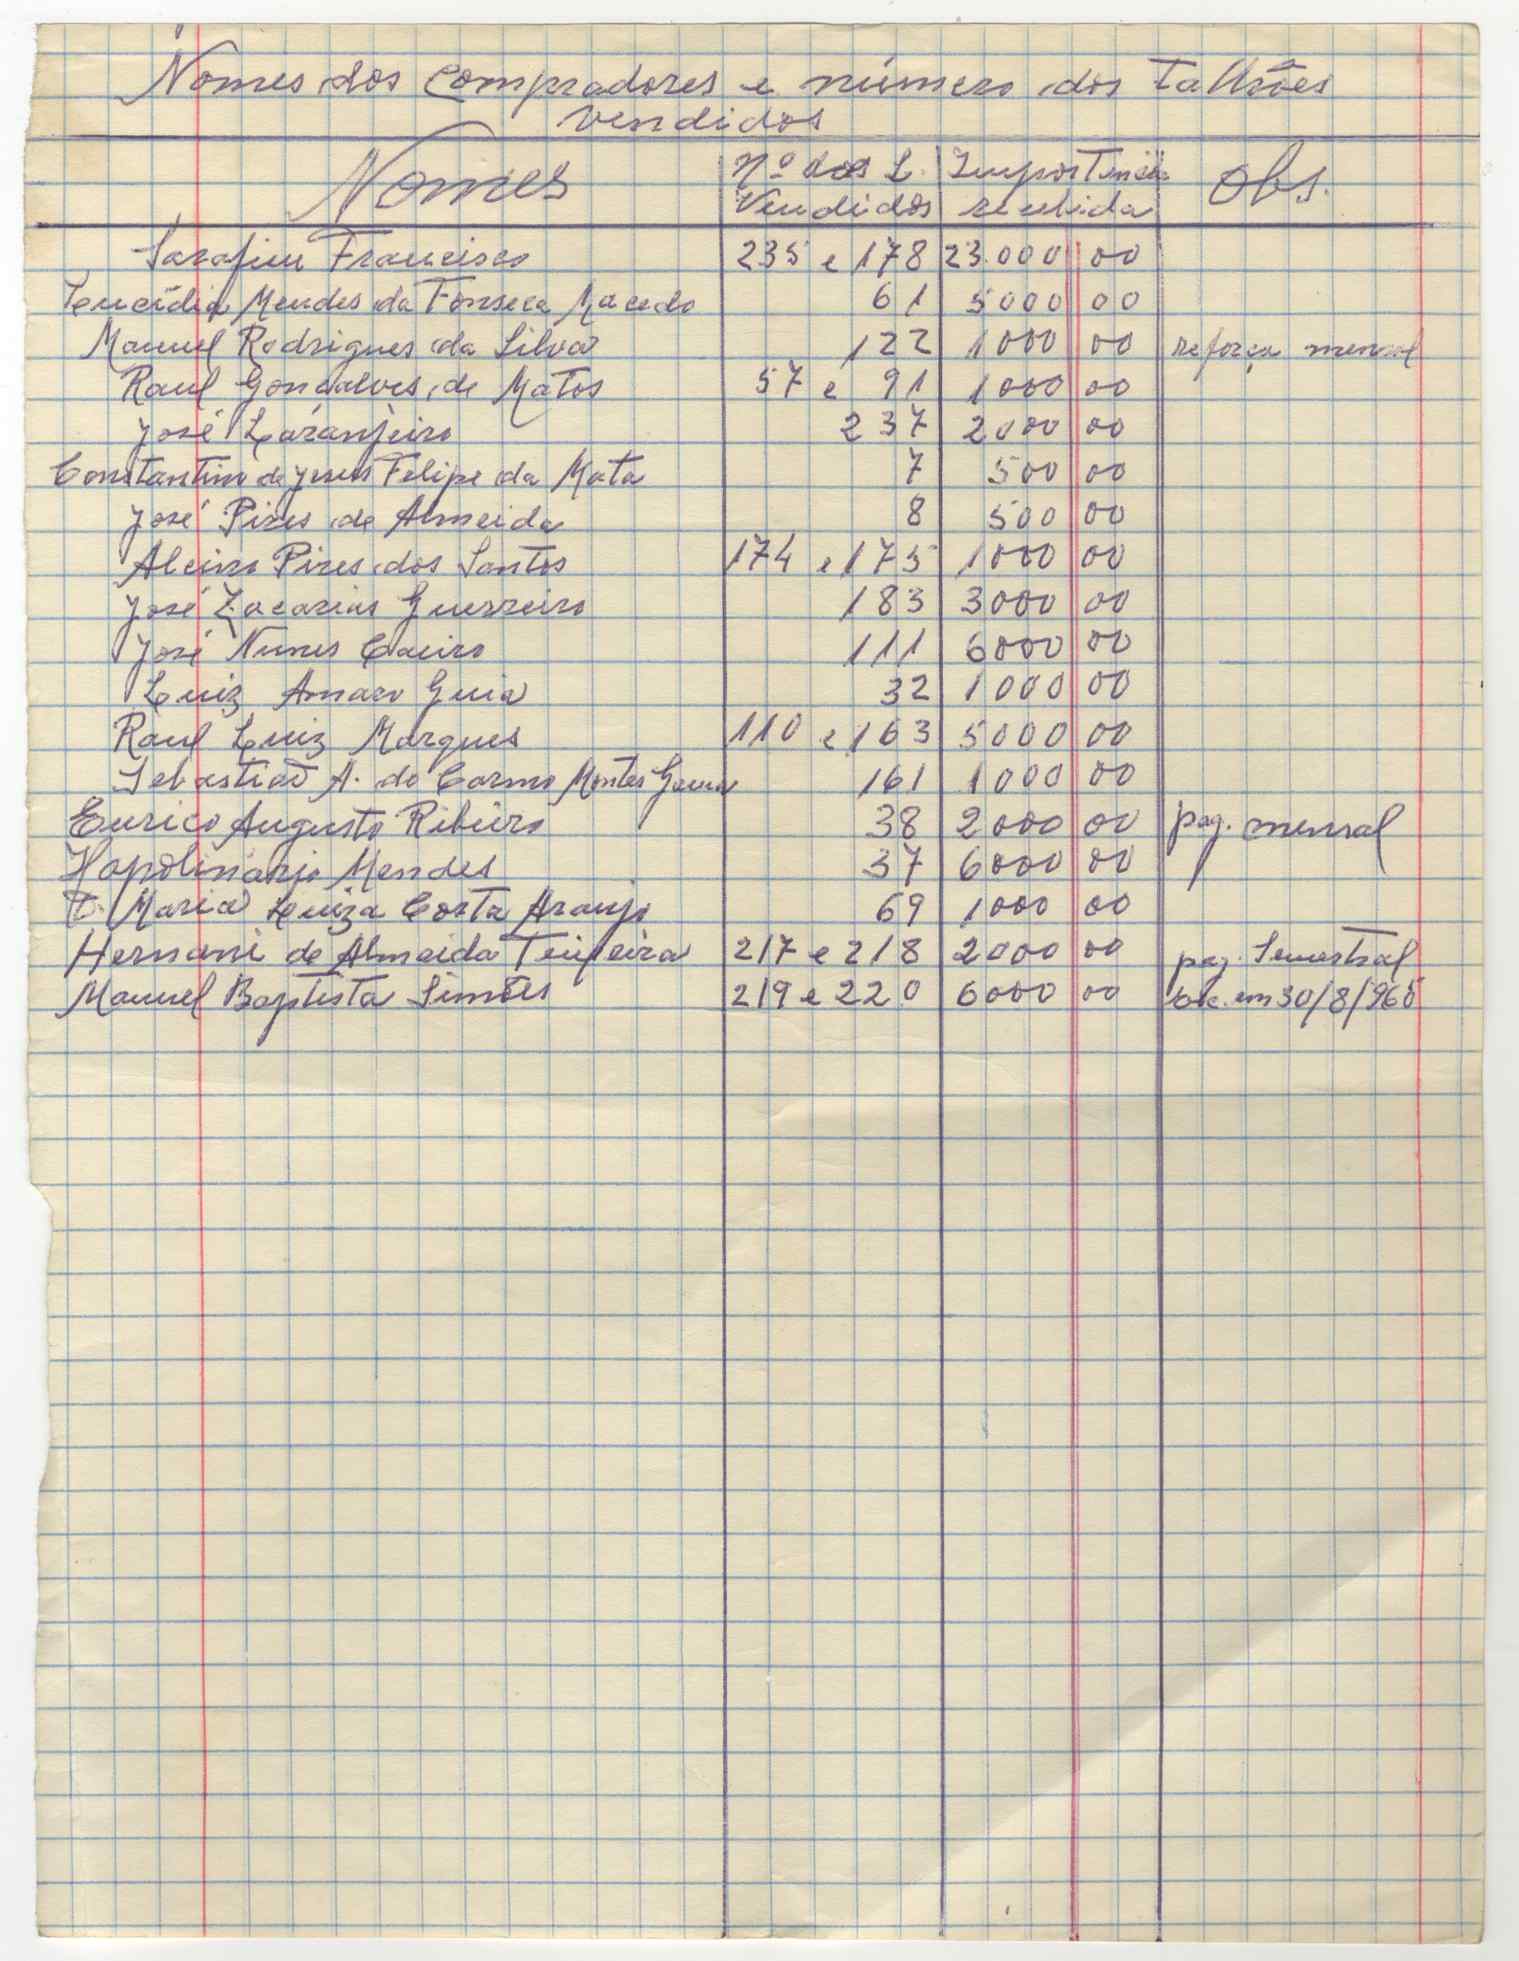 Nomes dos Compradores e número dos Talhões
Vendidos
Nomes Nº dos L. Vendidos Importância recebida Obs.
Sarafim Francisco 235 e 178 23.000 00
Mendes da Fonseca Macedo 61 5000 00
Manuel Rodrigues da Silva 122 1000 00 reforça mensal
Raul Gonçalves de Matos 57 e 91 1000 00
José Laranjeiro 237 2000 00
Constantino de Jesus Felipe da Mata 7 500 00
José Pires de Almeida 8 500 00
Alciro Pires dos Santos 174 e 175 1000 00
José Zacarias Guerreiro 183 3000 00
José Nunes Caeiro 111 6000 00
Luiz Amaro Guia 32 1000 00
Raul Luiz Marques 110 e 163 5000 00
Sebastião A. do Carmo Montes 161 1000 00
Eurico Augusto Ribeiro 38 2000 00 pag. mensal
Hapolinário Mendes 37 6000 00
D. Maria Luiza Costa Araujo 69 1000 00
Hernani de Almeida Teixeira 217 e 218 2000 00 pag. Semestral
Manuel Baptista Simões 219 e 220 6000 00 em 30/8/965